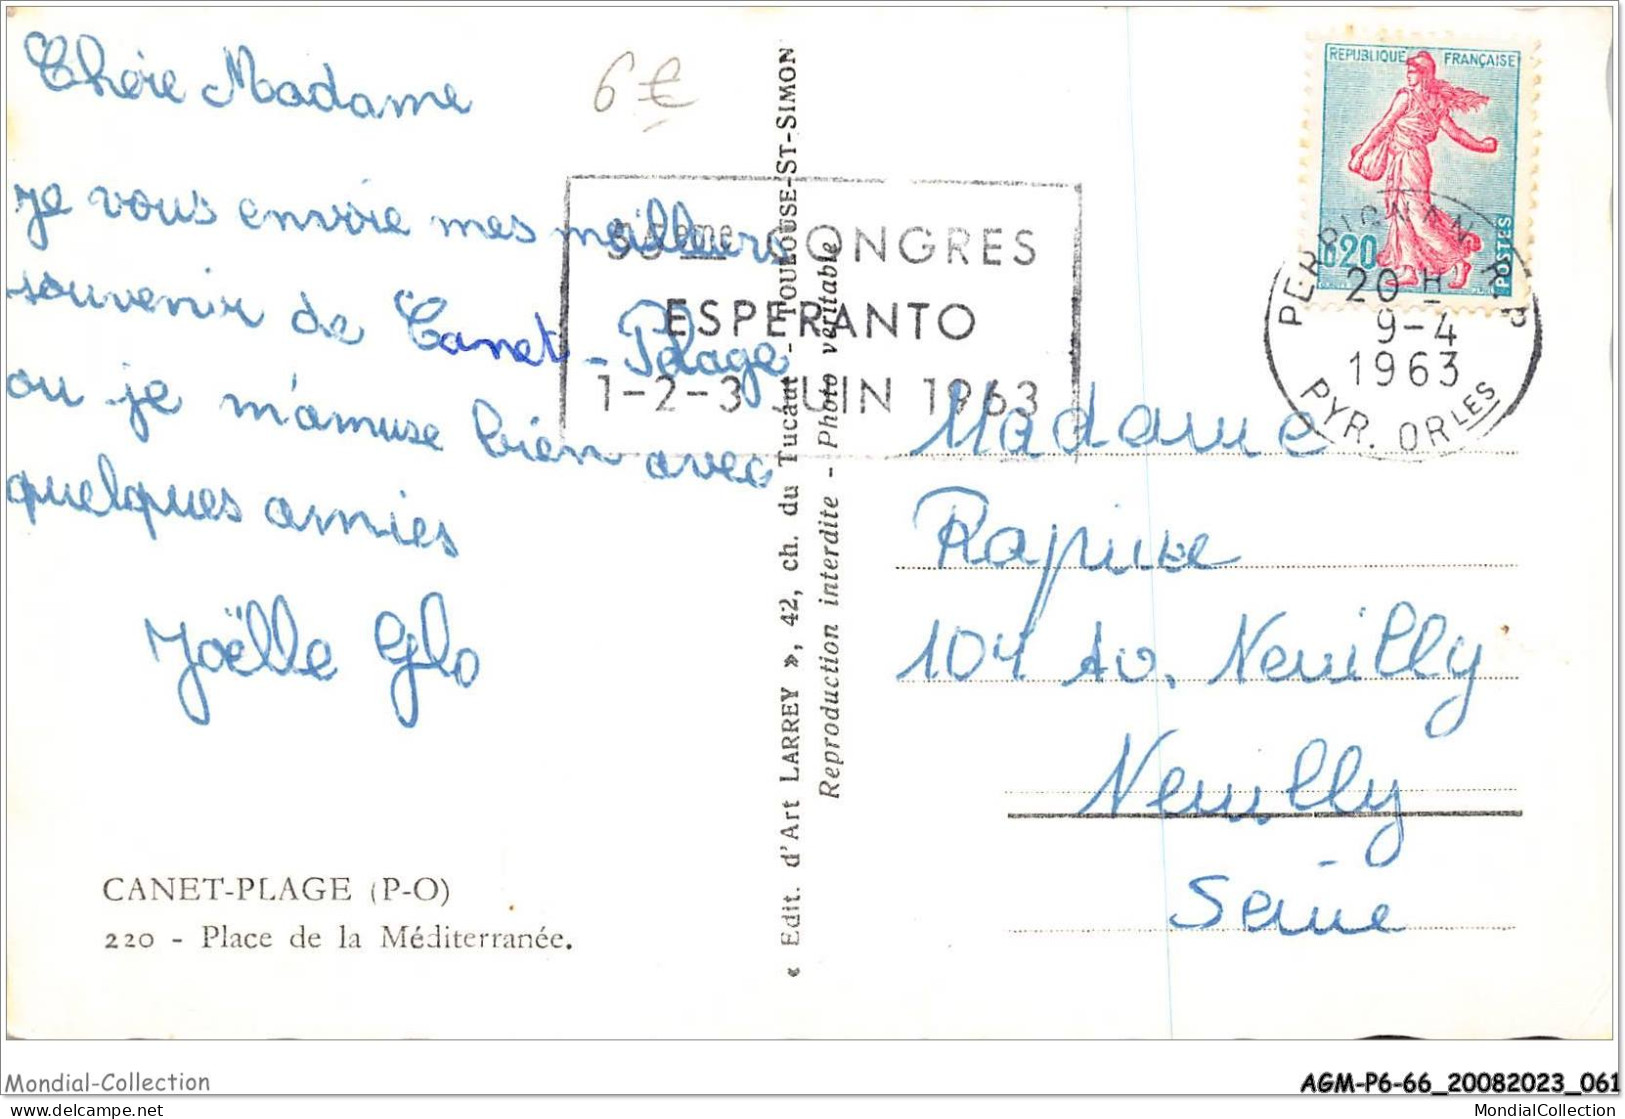 Chère Madame
je vous envoie mes meilleurs
souvenir de Canet-Plage
ou je m'amuse bien avec
quelques amies
Joëlle Glo
6€
CANET-PLAGE (P-O)
220 - Place de la Méditerranée.
« Edit. d'Art LARREY », 42, ch. du Tucaut - TOULOUSE-ST-SIMON
Reproduction interdite - Photo véritable
CONGRES
ESPERANTO
1-2-3 JUIN 1963
REPUBLIQUE FRANÇAISE
0.20
POSTES
PERPIGNAN R.P
20 H
9-4
1963
PYR. ORLES
Madame
104 Av. Neuilly
Neuilly
Seine
Mondial-Collection
AGM-P6-66_20082023_061
delcampe.net
MondialCollection